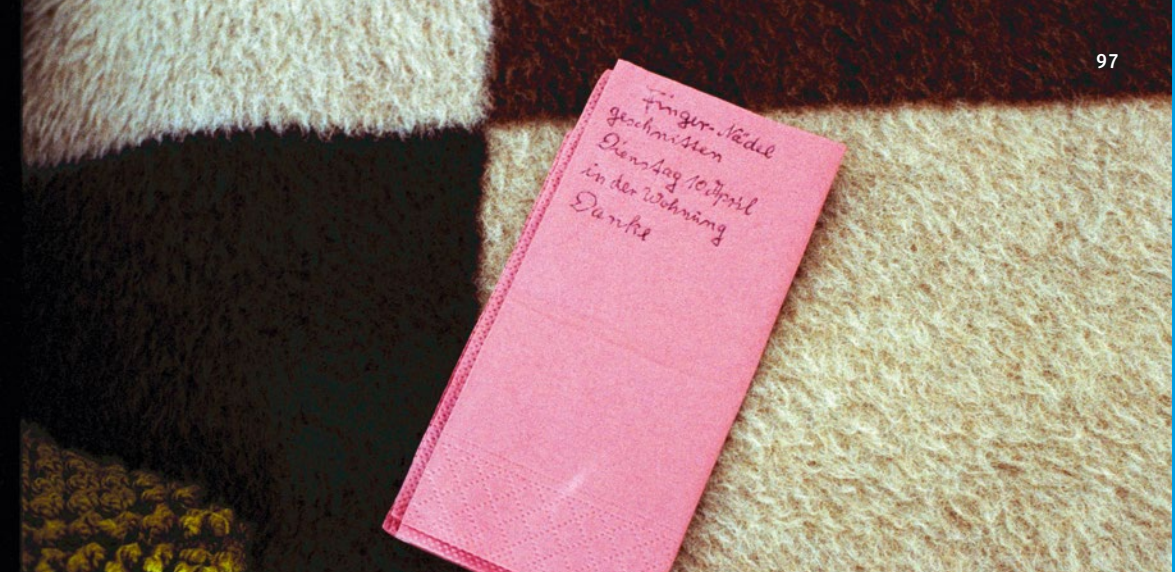 97
Finger-Nädel
geschnitten
Dienstag 10 April
in der Wohnung
Danke